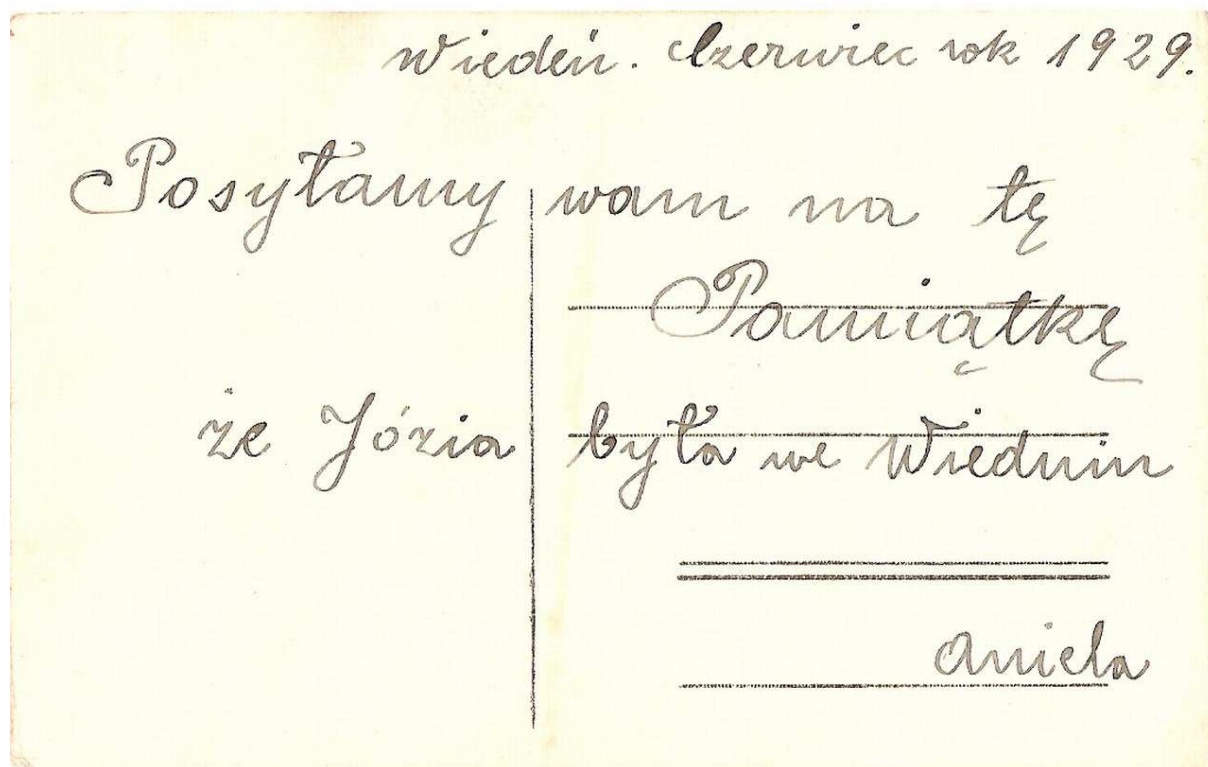 Wiedeń. Czerwiec rok 1929.
Posyłamy wam na tę
Pamiątkę
że Józia była we Wiedniu
Aniela